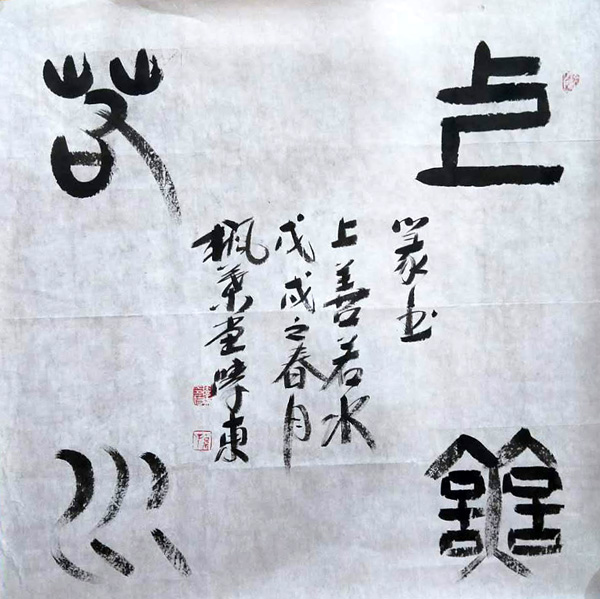 上善
若水
篆书
上善若水
戊戌之春月
楓葉堂 東